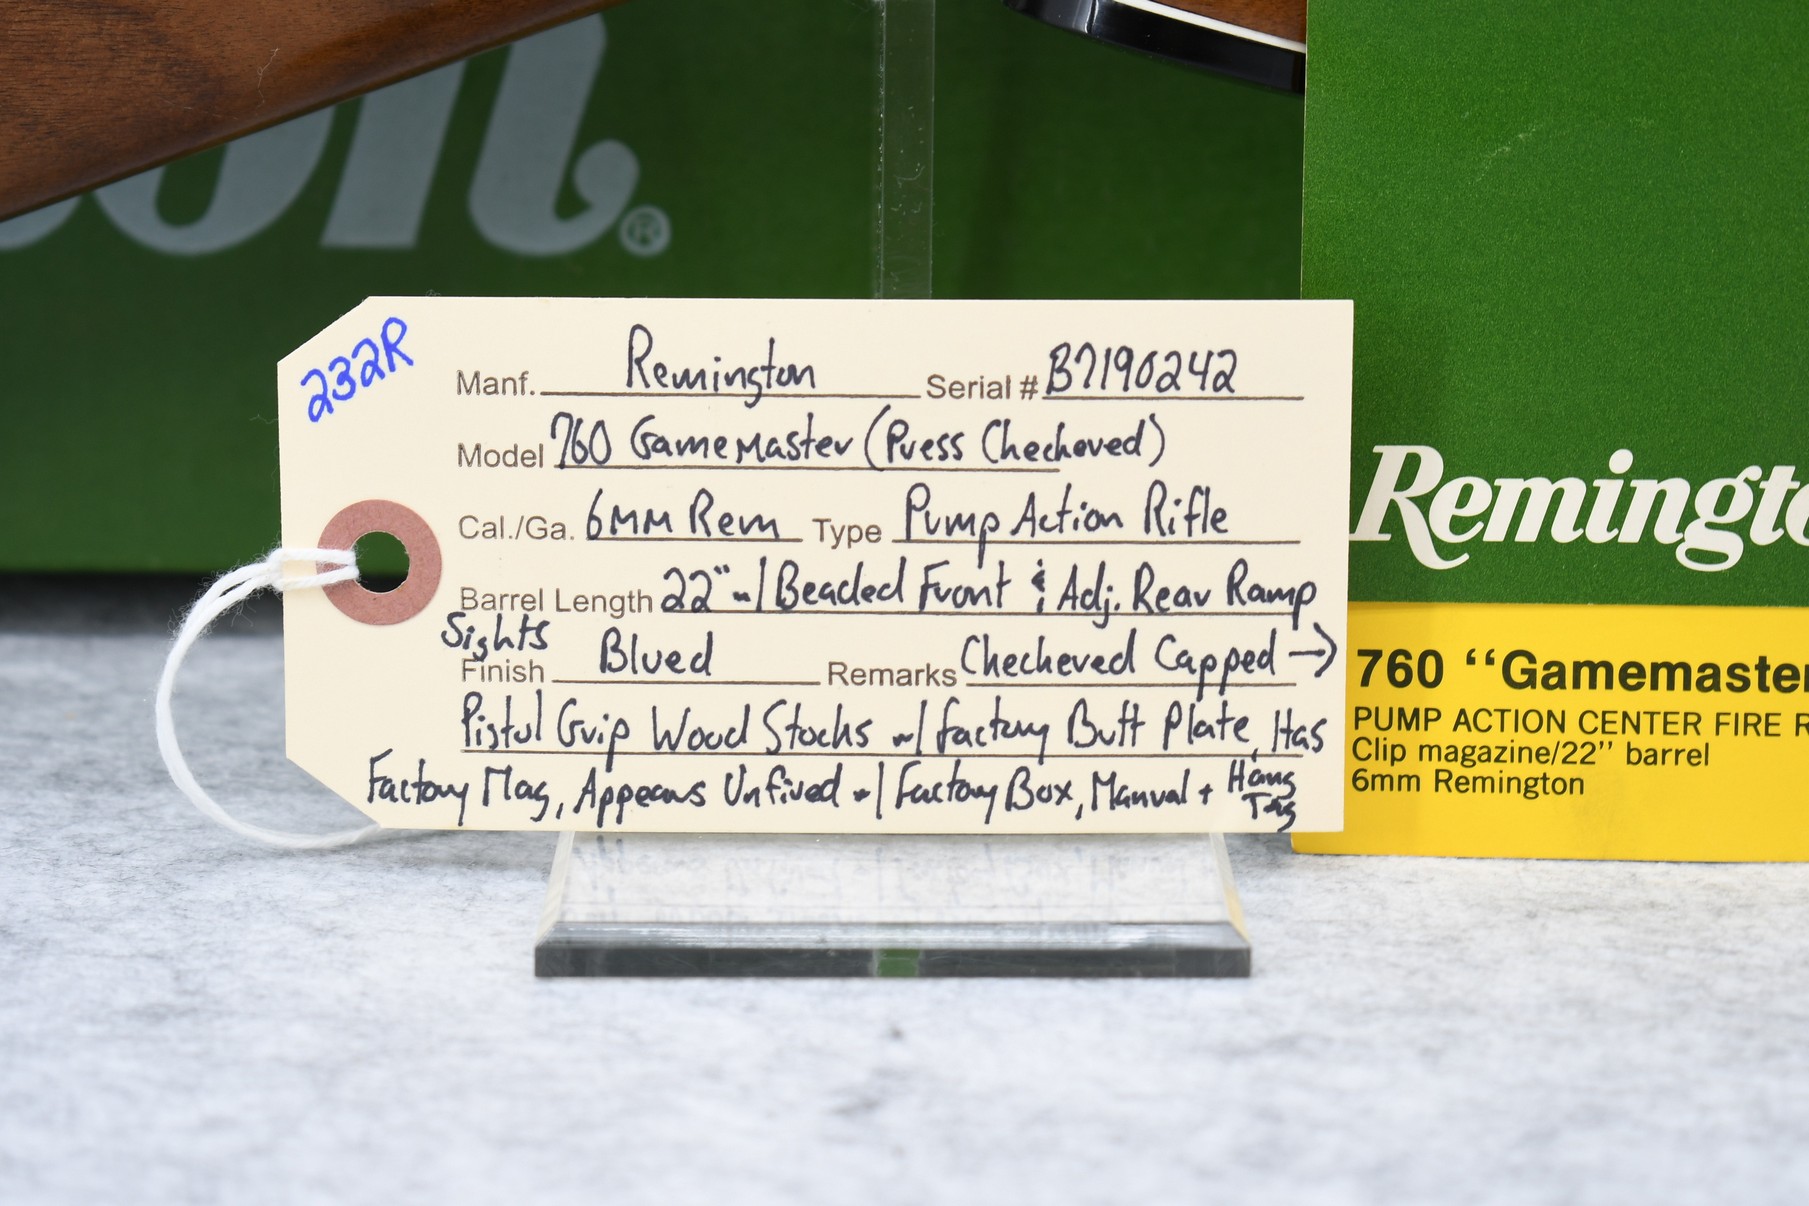 on®
232R
Manf. Remington Serial # B7190242
Model 760 Gamemaster (Press Checkered)
Cal./Ga. 6MM Rem Type Pump Action Rifle
Barrel Length 22" w/ Beaded Front & Adj. Rear Ramp
Sights
Finish Blued Remarks Checkered Capped →
Pistol Grip Wood Stocks w/ factory Butt Plate, Has
Factory Mag, Appears Unfired w/ Factory Box, Manual + Hang
Tag
Remingto
760 “Gamemaster
PUMP ACTION CENTER FIRE R
Clip magazine/22” barrel
6mm Remington